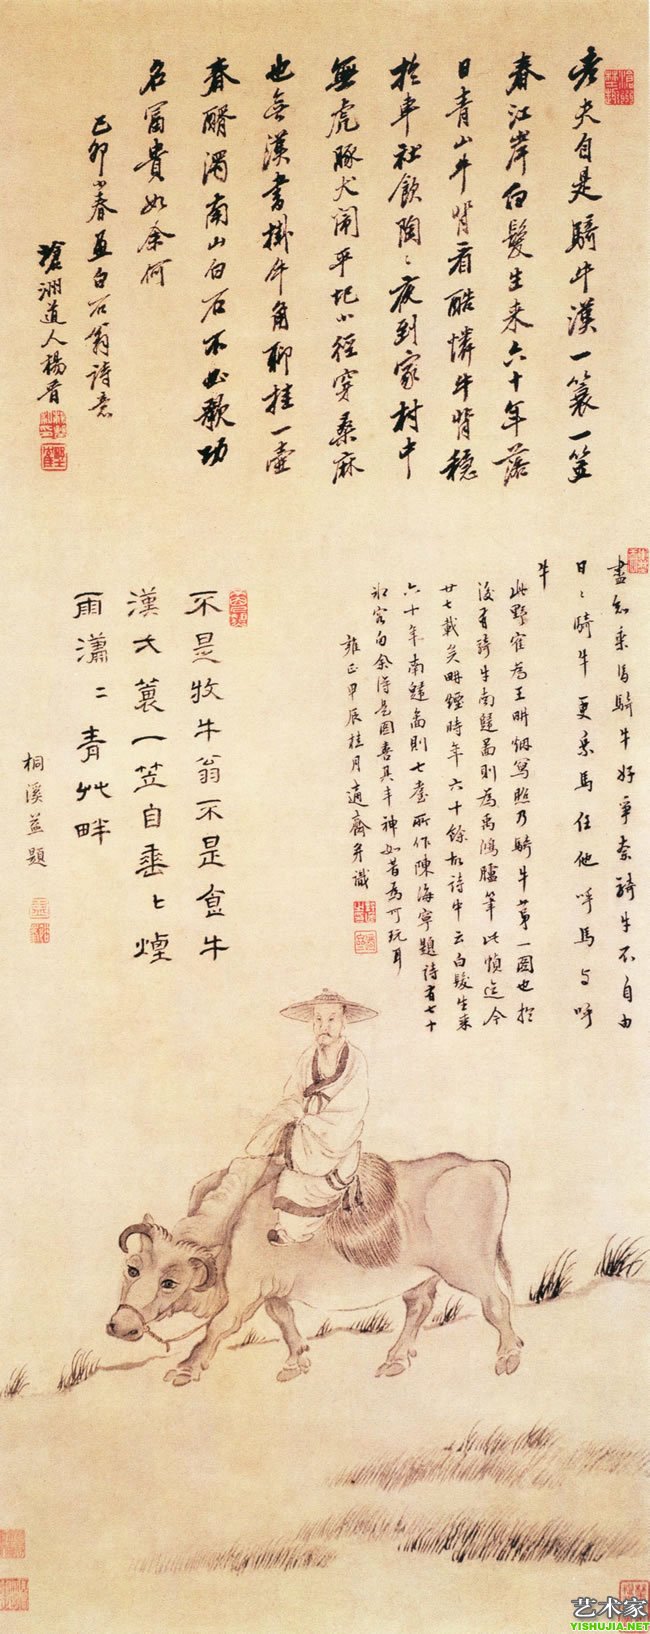 老夫自是騎牛漢一蓑一笠
春江岸白髮生来六十年落
日青山牛背看酷憐牛背穏
於車社飲陶〻夜到家村中
無虎豚犬鬧平圯小徑穿桑麻
也無漢書掛牛角聊挂一壺
春醑濁南山白石不必歌功
名富貴如余何
己卯小春畫白石翁詩意
滄洲道人楊晉
盡知乘馬騎牛好爭奈騎牛不自由
日〻騎牛更乘馬任他呼馬与呼
牛
此野寉為王畊烟寫照乃騎牛第一圖也於
後有騎牛南歸啚則為禹鴻臚筆此幀迄今
廿七載矣畊煙時年六十餘故詩中云白髮生来
六十年南歸啚則七耋所作陳海寧題詩有七十
句余得是圖喜其丰神如昔為可玩耳
雍正甲辰桂月適齋并識
不是牧牛翁不是食牛
漢大蓑一笠自垂〻煙
雨瀟〻青艸畔
桐溪益題
艺术家
YISHUJIA.NET